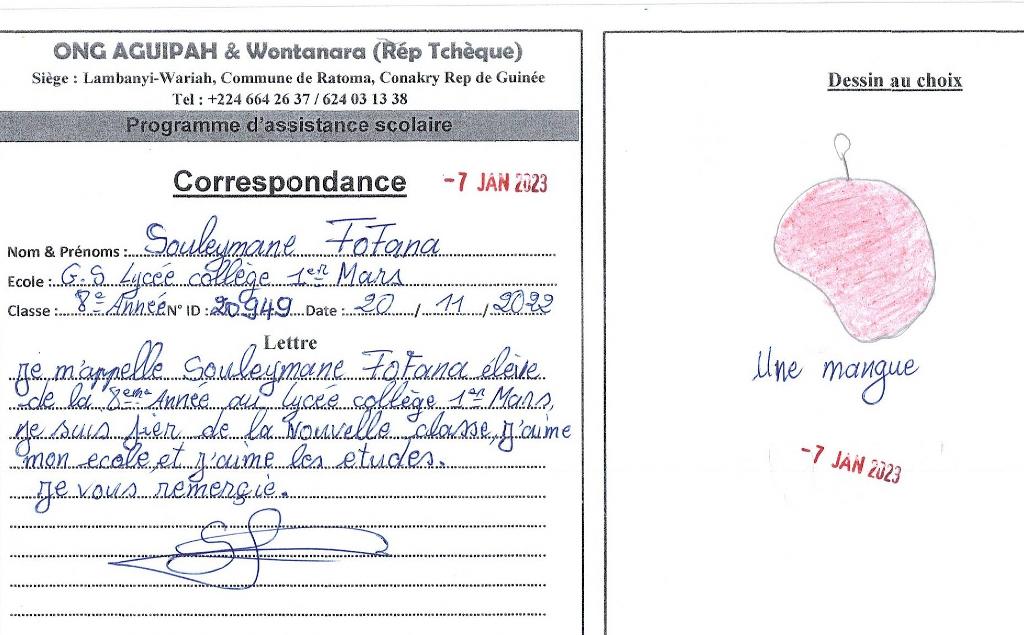 ONG AGUIPAH & Wontanara (Rép Tchèque)
Siège : Lambanyi-Wariah, Commune de Ratoma, Conakry Rep de Guinée
Tel : +224 664 26 37 / 624 03 13 38
Programme d'assistance scolaire
Correspondance -7 JAN 2023
Nom & Prénoms : Souleymane Fofana
Ecole : G.S Lycée collège 1er Mars
Classe : 8e Année N° ID : 20949 Date : 20 / 11 / 2022
Lettre
je m'appelle Souleymane Fofana élève
de la 8eme Année au lycée collège 1er Mars,
je suis fier de la nouvelle classe, j'aime
mon ecole, et j'aime les etudes.
je vous remerçie.
Dessin au choix
Une mangue
-7 JAN 2023